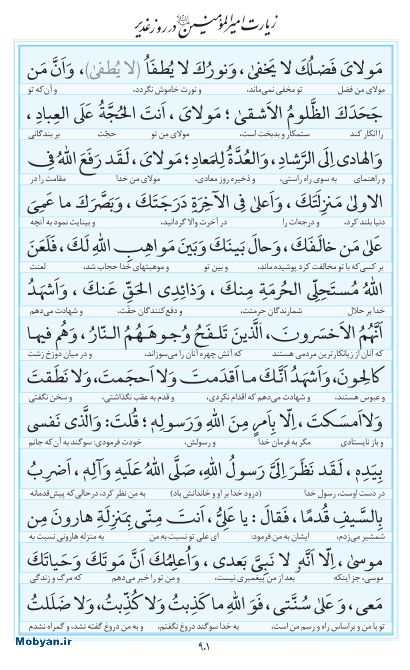 زیارت امیرالمؤمنین در روز غدیر
مَولایَ فَضلُكَ لا یَخفی، وَنورُكَ لا یُطفَأُ (لا یُطفی)، وَاَنَّ مَن
مولای من فضل تو مخفی نمی‌ماند، و نورت خاموش نگردد، و آن که تو
جَحَدَكَ الظَّلومُ الاَشقی؛ مَولایَ، اَنتَ الحُجَّةُ عَلَی العِبادِ،
را انکار کند ستمکار و بدبخت است، مولای من تو حجّت بر بندگانی
وَالهادی اِلَی الرَّشادِ، وَالعُدَّةُ لِلمَعادِ؛ مَولایَ، لَقَد رَفَعَ اللّٰهُ فِی
و راهنمای به سوی راه راستی، و ذخیره روز معادی، مولای من خدا مقامت را در
الاولی مَنزِلَتَكَ، وَاَعلی فِی الآخِرَةِ دَرَجَتَكَ، وَبَصَّرَكَ ما عَمِیَ
دنیا بلند کرد، و درجه‌ات را در آخرت والا گردانید، و بینایت نمود به آنچه
عَلی مَن خالَفَكَ، وَحالَ بَینَكَ وَبَینَ مَواهِبِ اللّٰهِ لَكَ، فَلَعَنَ
بر کسی که با تو مخالفت کرد پوشیده ماند، و بین تو و موهبتهای خدا حجاب شد، لعنت
اللّٰهُ مُستَحِلِّی الحُرمَةِ مِنكَ، وَذائِدِی الحَقِّ عَنكَ، وَاَشهَدُ
خدا بر حلال شمارندگان حرمتت، و دفع کنندگان حقّت، و شهادت می‌دهم
اَنَّهُمُ الاَخسَرونَ، اَلَّذینَ تَلفَحُ وُجوهَهُمُ النّارُ، وَهُم فیها
که آنان از زیانکارترین مردمی هستند که آتش چهره آنان را می‌سوزاند، و در میان دوزخ زشت
كالِحونَ، وَاَشهَدُ اَنَّكَ ما اَقدَمتَ وَلا اَحجَمتَ، وَلا نَطَقتَ
و عبوس هستند، و شهادت می‌دهم که اقدام نکردی، و قدم به عقب نگذاشتی، و سخن نگفتی
وَلا اَمسَكتَ، اِلّا بِاَمرٍ مِنَ اللّٰهِ وَرَسولِهِ؛ قُلتَ: وَالَّذی نَفسی
و باز نایستادی مگر به فرمان خدا و رسولش، خودت فرمودی: سوگند به آن که جانم
بِیَدِهِ، لَقَد نَظَرَ اِلَیَّ رَسولُ اللّٰهِ، صَلَّی اللّٰهُ عَلَیهِ وَآلِهِ، اَضرِبُ
در دست اوست، رسول خدا (درود خدا بر او و خاندانش باد) به من نظر کرد، درحالی که پیش‌قدمانه
بِالسَّیفِ قُدمًا، فَقالَ: یا عَلِیُّ، اَنتَ مِنّی بِمَنزِلَةِ هارونَ مِن
شمشیر می‌زدم، ایشان به من فرمود: ای علی تو نسبت به من به منزله هارونی نسبت به
موسی، اِلّا اَنَّهُ لا نَبِیَّ بَعدی، وَاُعلِمُكَ اَنَّ مَوتَكَ وَحَیاتَكَ
موسی، جز اینکه بعد از من پیغمبری نیست، و من تو را خبر می‌دهم که مرگ و زندگی
مَعی، وَعَلی سُنَّتی، فَوَ اللّٰهِ ما كَذِبتُ وَلا كُذِّبتُ، وَلا ضَلَلتُ
تو با من و براساس راه و رسم من است، به خدا سوگند دروغ نگفتم، و به من دروغ گفته نشد، و گمراه نشدم
Mobyan.ir
۹۰۱